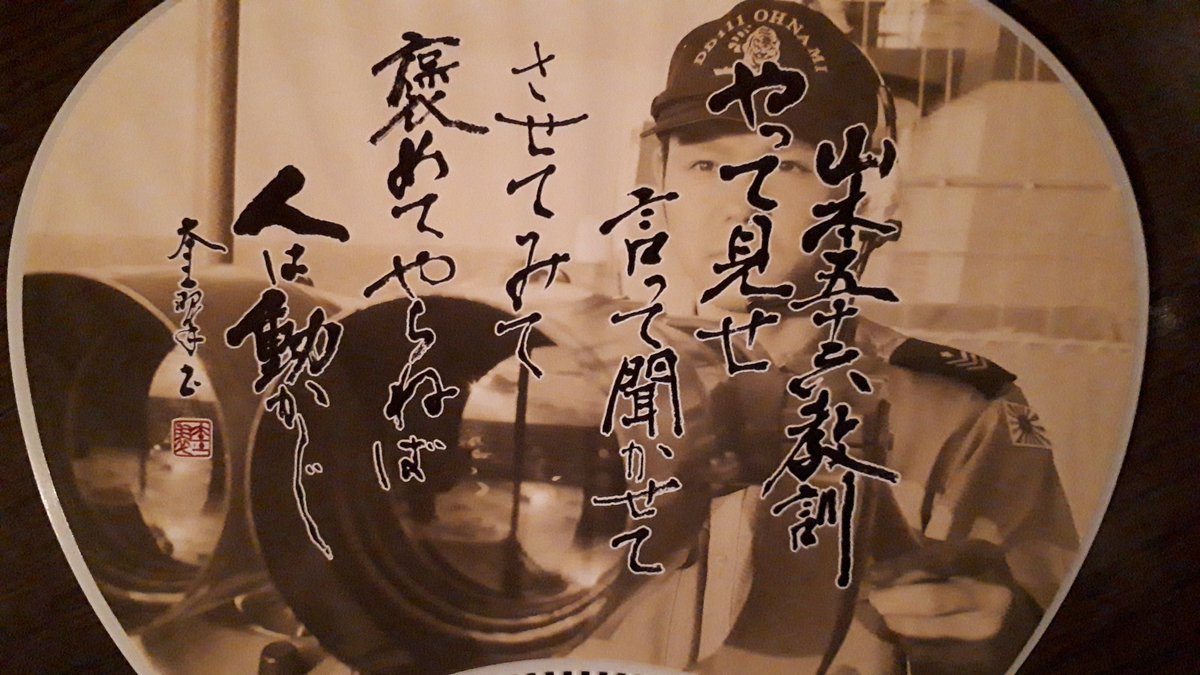 山本五十六教訓
やって見せ
言って聞かせて
させてみて
褒めてやらねば
人は動かじ
DD111 OHNAMI